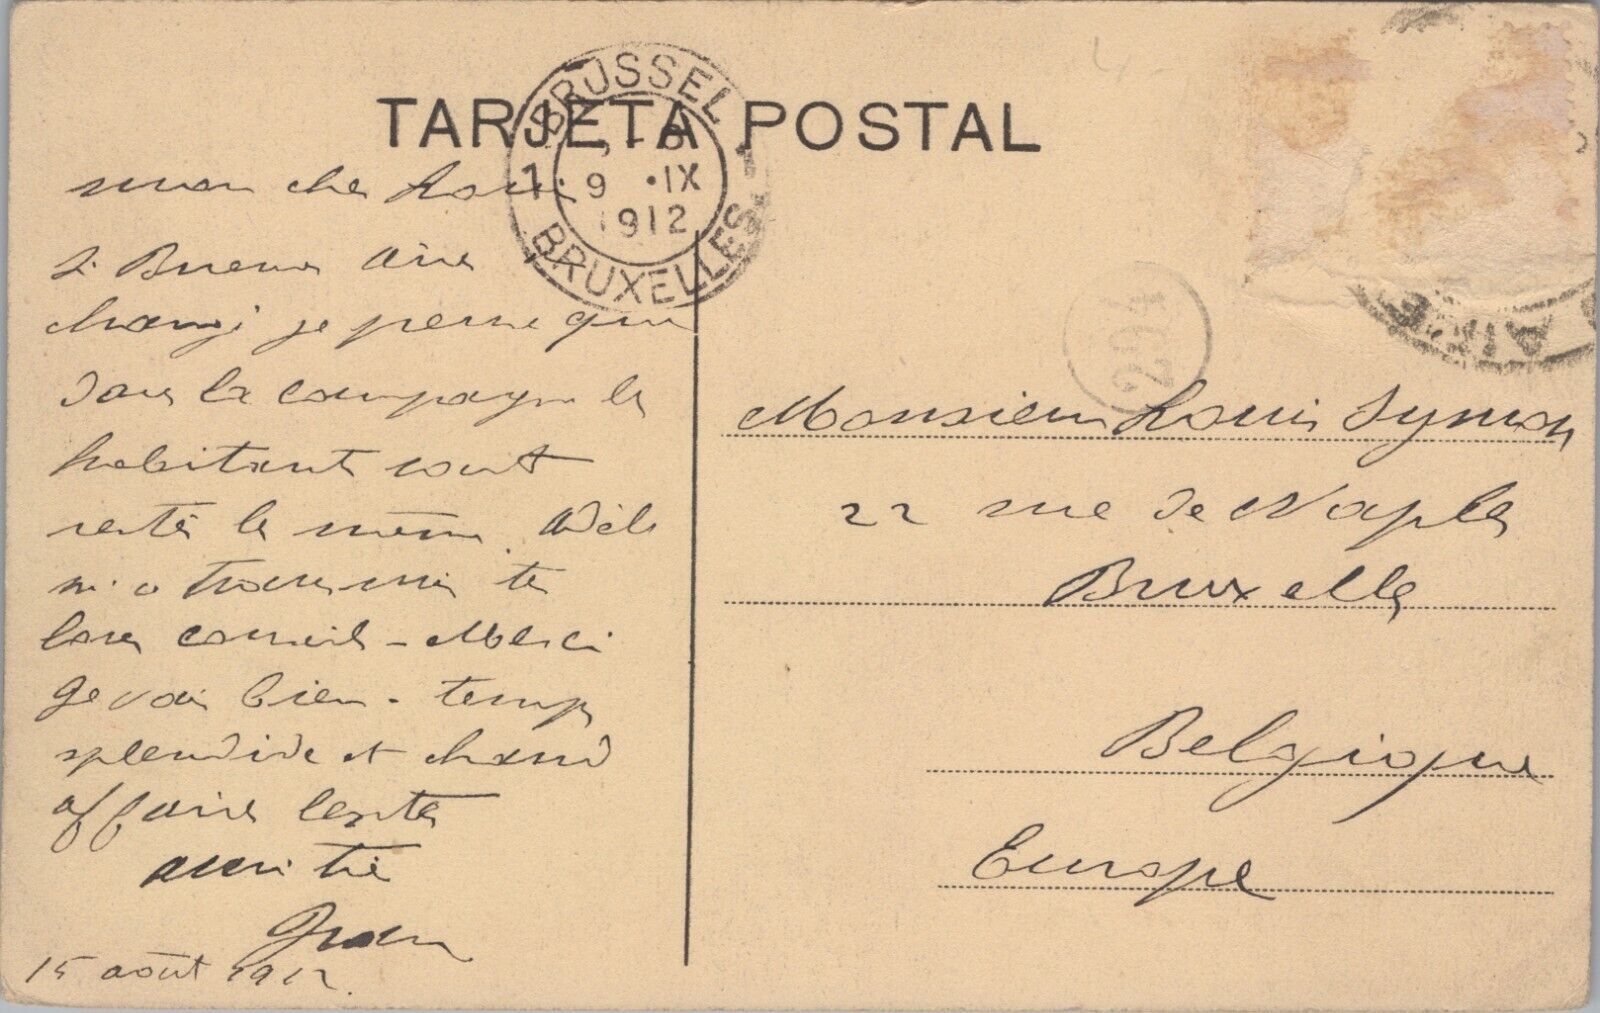 TARJETA POSTAL
BRUSSEL
9 IX
1912
BRUXELLES
mon cher Louis
Si Buenos Aires
change je pense que
dans la campagne les
habitants sont
restés les mêmes. Adèle
m'a transmis tes
bons conseils - Merci
Je vais bien - temps
splendide et chaud
affaires lentes
amitié
15 août 1912.
204
AIRES
Monsieur Louis Symon
22 rue de Naples
Bruxelles
Belgique
Europe